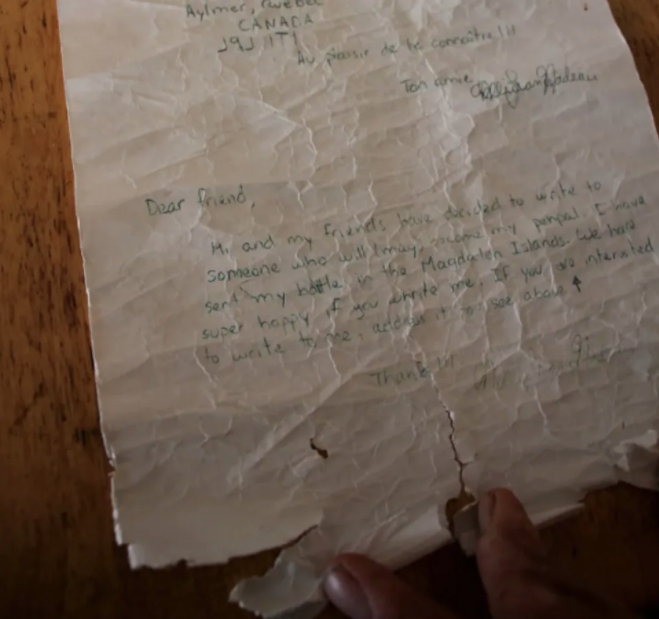 Aylmer, Québec
CANADA
J9J 1T1
Au plaisir de te connaître!!!
Ton amie
Dear friend,
Hi and my friends have decided to write to
someone who will may my penpal. I have
sent my bottle in the Magdalen Islands. We have
super happy if you write me. If you are interested
to write to me, address it see above ↑
Thanks!!!